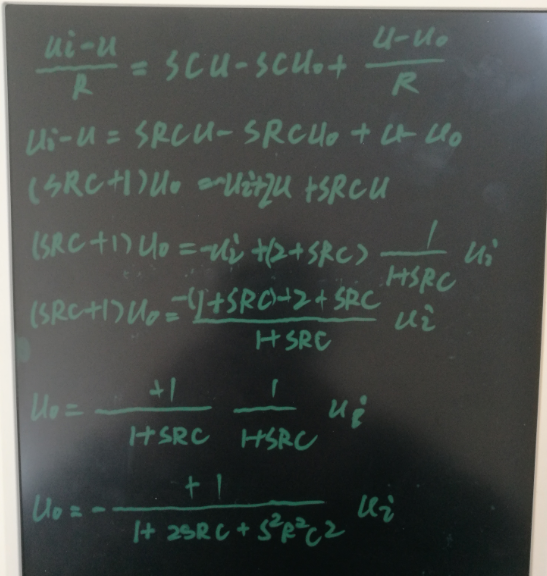 (ui-u)/R = SCU-SCU₀+ (u-u₀)/R
ui-u = SRCU- SRCU₀ + u- u₀
(SRC+1)U₀ =-ui+2u +SRCU
(SRC+1)U₀ =-ui +(2+SRC) 1/(1+SRC) ui
(SRC+1)U₀ = (-(1+SRC)+2+SRC)/(1+SRC) ui
U₀ = +1/(1+SRC) 1/(1+SRC) ui
U₀ = - +1/(1+2SRC+S²R²C2) ui